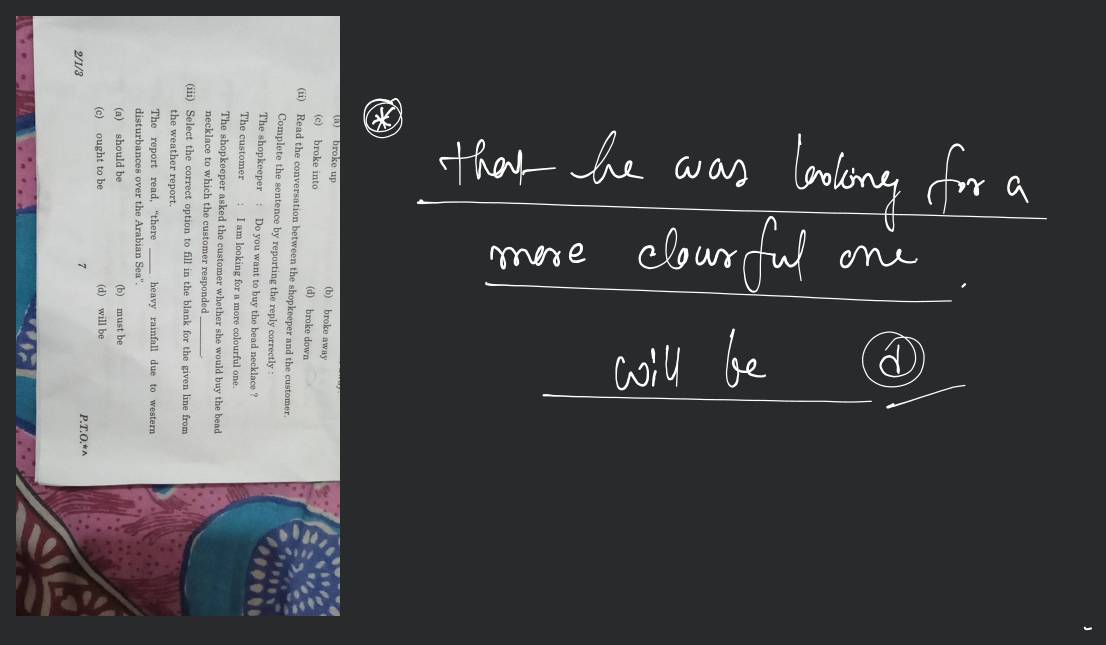 (a) broke up (b) broke away
(c) broke into (d) broke down
(ii) Read the conversation between the shopkeeper and the customer.
Complete the sentence by reporting the reply correctly :
The shopkeeper : Do you want to buy the bead necklace ?
The customer : I am looking for a more colourful one.
The shopkeeper asked the customer whether she would buy the bead
necklace to which the customer responded ______.
(iii) Select the correct option to fill in the blank for the given line from
the weather report.
The report read, "there ____ heavy rainfall due to western
disturbances over the Arabian Sea".
(a) should be (b) must be
(c) ought to be (d) will be
2/1/3 7 P.T.O.*^
that he was looking for a
more clourful one.
will be d